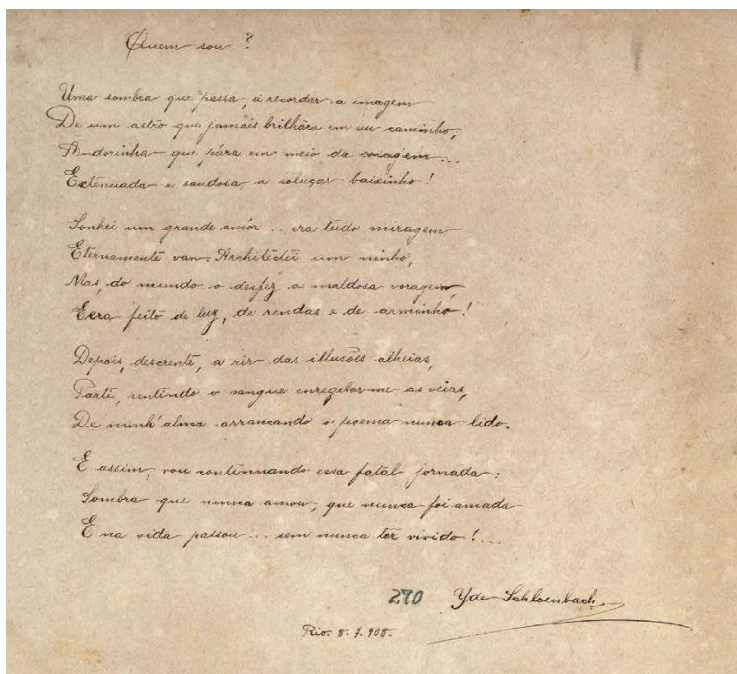 Quem sou?
Uma sombra que passa, a recordar a imagem
De um astro que jamais brilhára em seu caminho,
Andorinha que pára em meio da viagem...
Extenuada e saudosa a soluçar baixinho!
Sonhei um grande amôr... era tudo miragem
Eternamente van. Architectei um ninho,
Mas, do mundo o desfez a maldosa voragem,
E era feito de luz, de rendas e de arminho!
Depois, descrente, a rir das illusões alheias,
Parti, sentindo o sangue enregelar-me as veias,
De minh'alma arrancando o poema nunca lido.
E assim, vou continuando essa fatal jornada:
Sombra que nunca amou, que nunca foi amada
E na vida passou... sem nunca ter vivido!...
290 Yde Schloenbach.
Rio. 8. 7. 908.